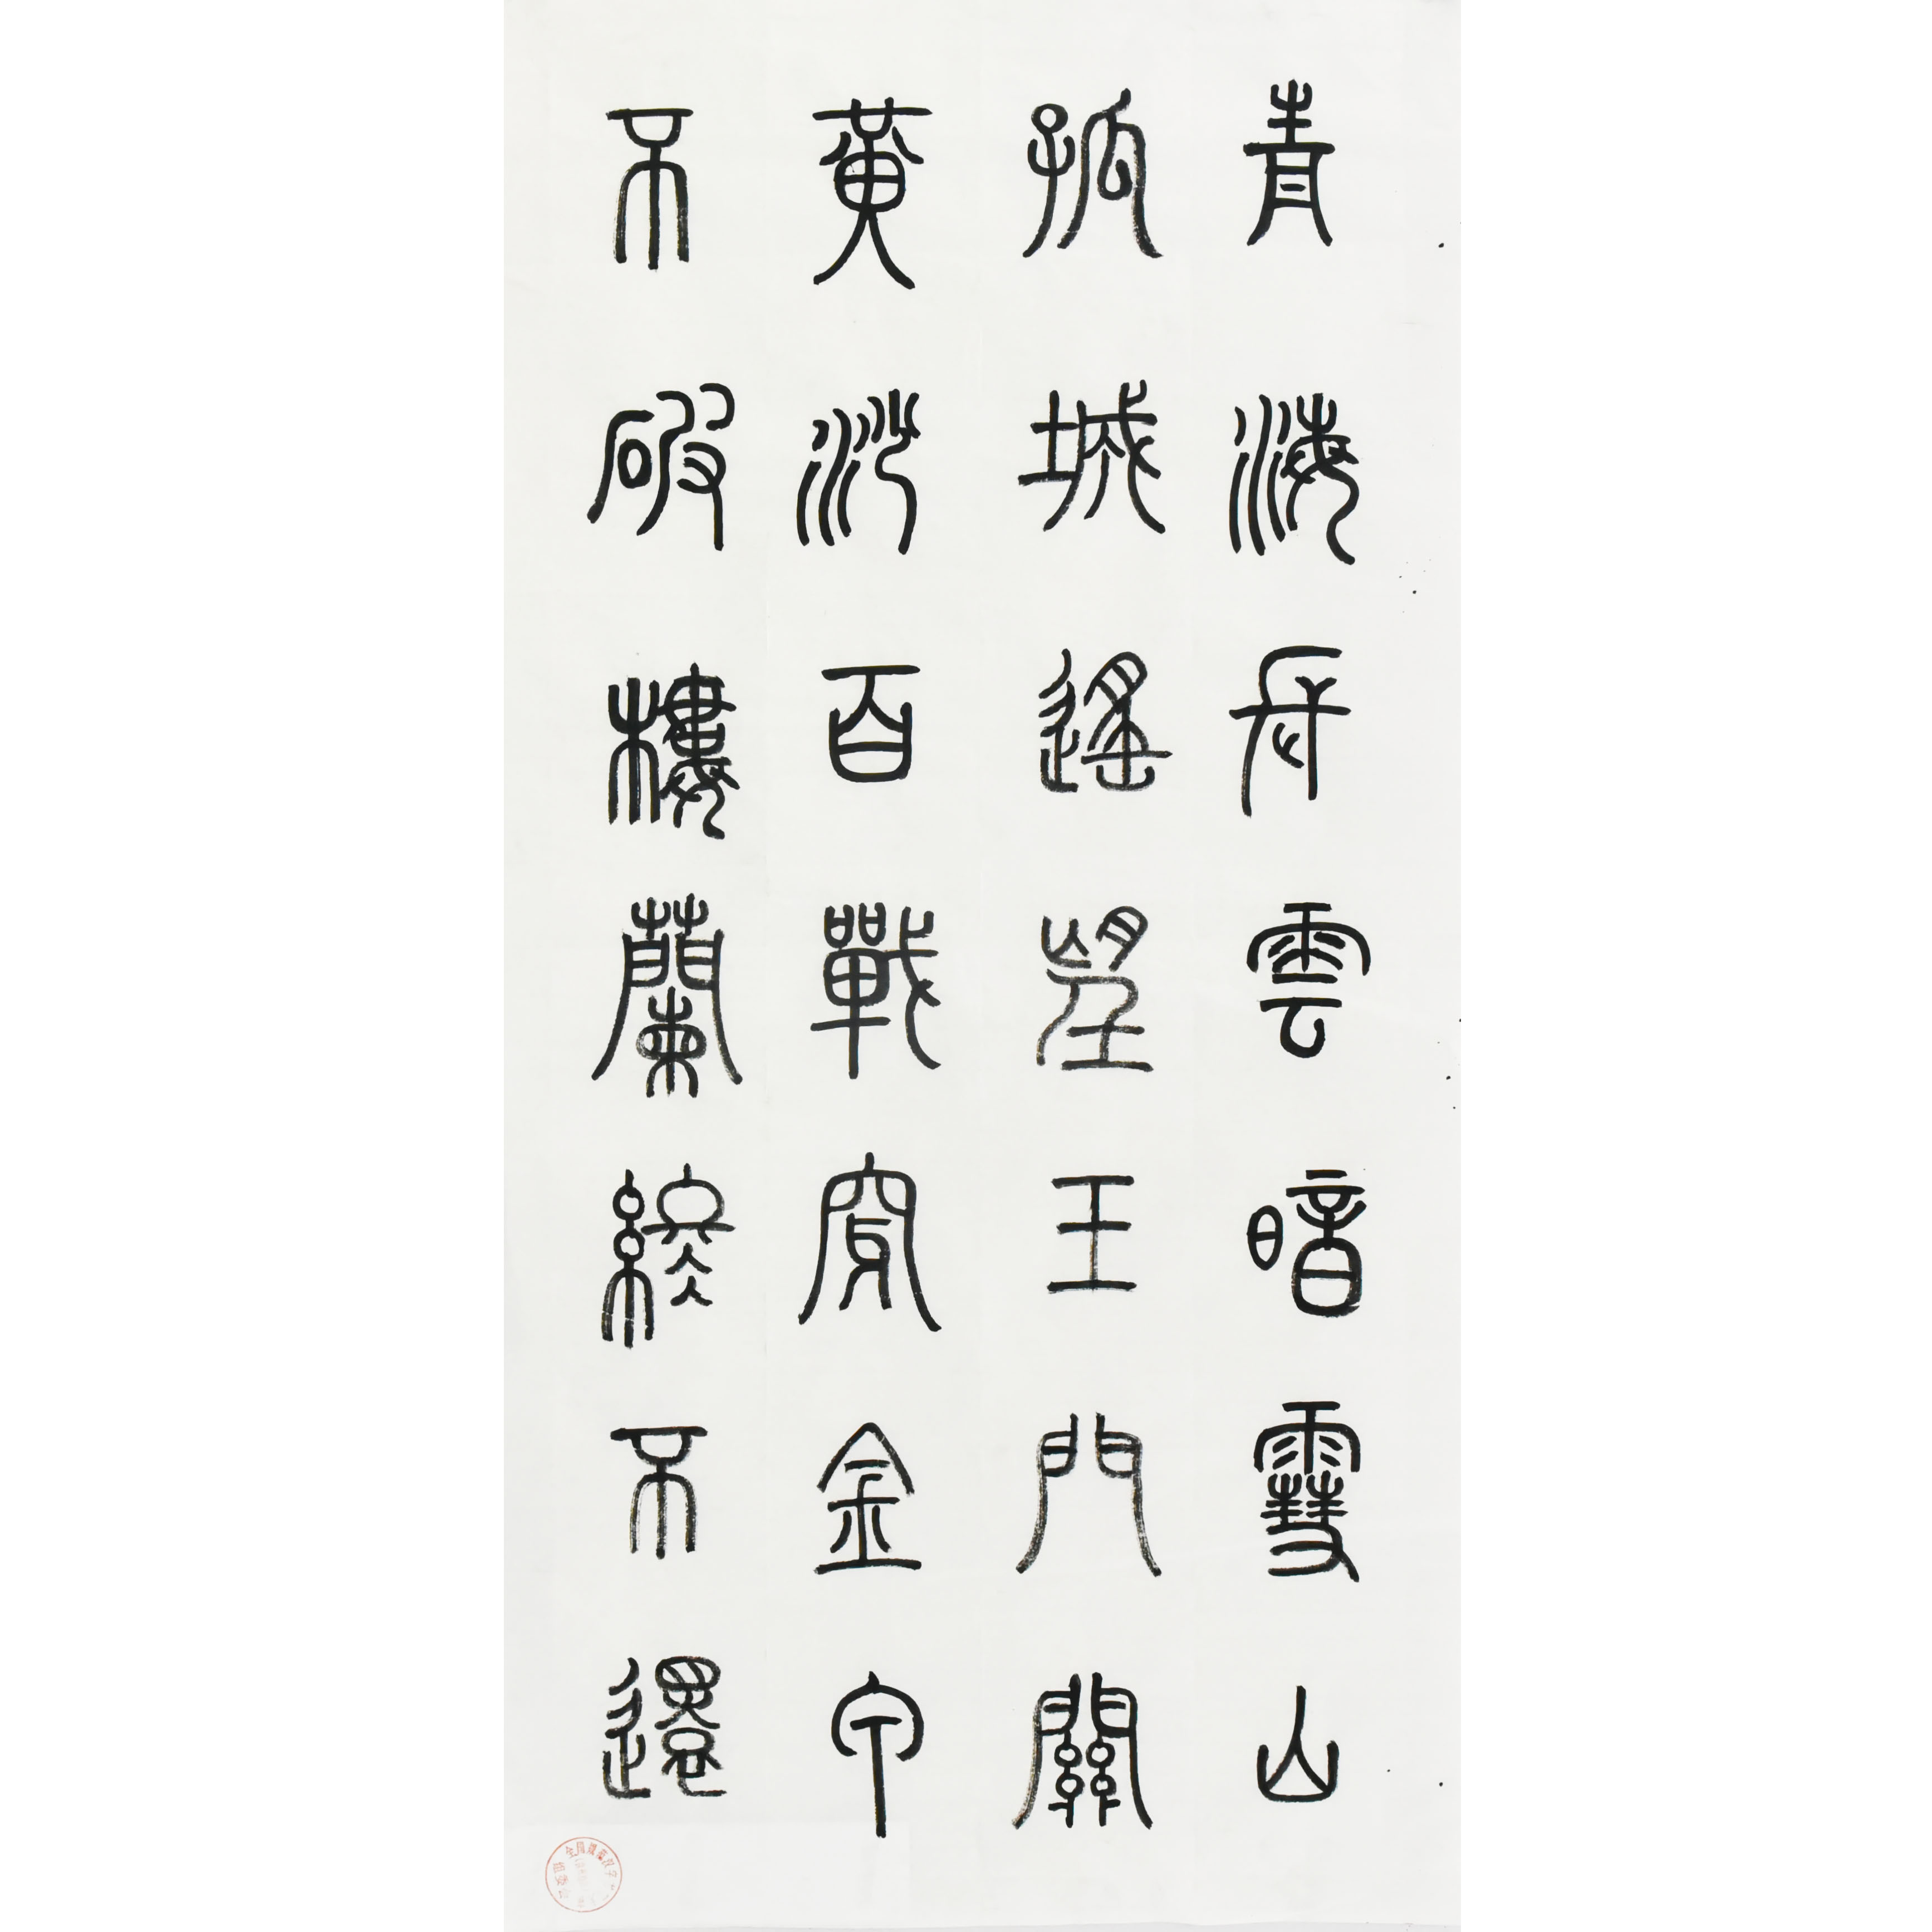 青海長雲暗雪山
孤城遙望玉門關
黃沙百戰穿金甲
不破樓蘭終不還